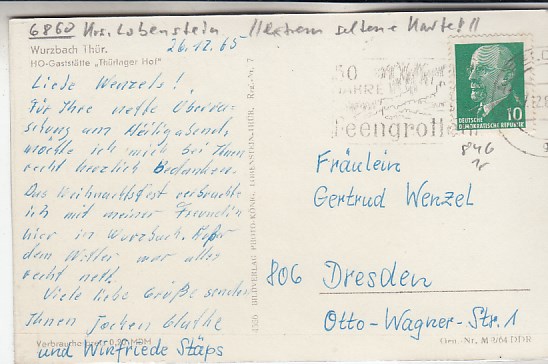 6860 Krs. Lobenstein //extrem seltene Karte!//
Wurzbach Thür.
HO-Gaststätte „Thüringer Hof"
26.12.65
Liebe Wenzels!
Für Ihre nette Überra-
schung am Heiligabend,
möchte ich mich bei Ihnen
recht herzlich bedanken.
Das Weihnachtsfest verbrachte
ich mit meiner Freundin
hier in Wurzbach. Außer
dem Wetter war alles
recht nett.
Viele liebe Grüße senden
Ihnen Jochen
und Winfriede Stäps
Verbraucherpreis 0,20 MDN
BILDVERLAG PHOTO-KÖNIG, LOBENSTEIN/THÜR. Reg.-Nr. 7
50
JAHRE
Feengrotten
DEUTSCHE
DEMOKRATISCHE REPUBLIK
10
846
Fräulein
Gertrud Wenzel
806 Dresden
Otto-Wagner-Str. 1
Gen.-Nr. M 3/64 DDR